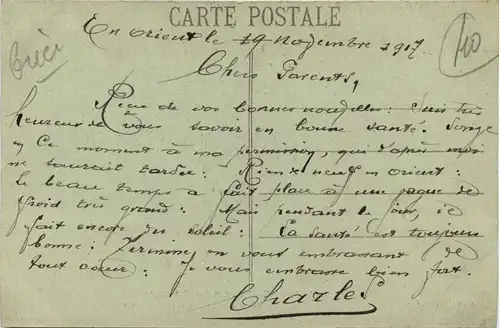 CARTE POSTALE
En orient le 19 Novembre 1917
40
Chers Parents,
Reçu de vos bonnes nouvelles : Suis très
heureux de vous savoir en bonne santé. Songe
en Ce moment à ma permission, qui d'après moi
ne saurait tarder : Rien de neuf en orient :
le beau temps a fait place à une vague de
froid très grand : Mais pendant le jour, il
fait encore du soleil : La santé est toujours
bonne : Termine en vous embrassant de
tout cœur : Je vous embrasse bien fort.
Charles